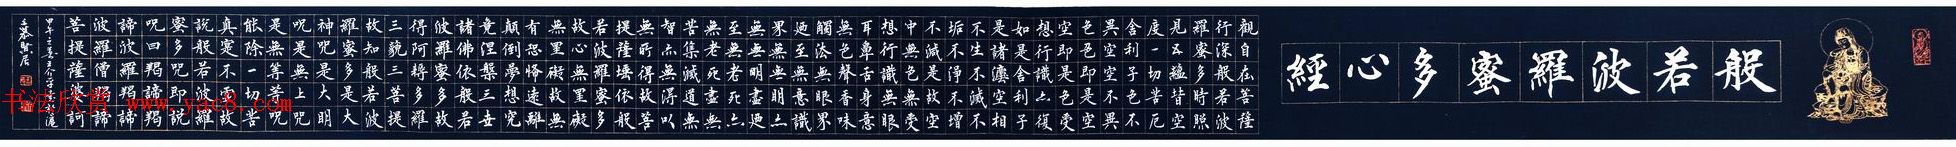 般若波羅蜜多心經
觀自在菩薩
行深般若波
羅蜜多時照
見五蘊皆空
度一切苦厄
舍利子色不
異空空不異
色色即是空
空即是色受
想行識亦復
如是舍利子
是諸法空相
不生不滅不
垢不淨不增
不減是故空
中無色無受
想行識無眼
耳鼻舌身意
無色聲香味
觸法無眼界
廼至無意識
界無無明亦
無無明盡廼
至無老死亦
無老死盡無
苦集滅道無
智亦無得以
無所得故菩
提薩埵依般
若波羅蜜多
故心無罣礙
無罣礙故無
有恐怖遠離
顛倒夢想究
竟涅槃三世
諸佛依般若
波羅蜜多故
得阿耨多羅
三藐三菩提
故知般若波
羅蜜多是大
神呪是大明
呪是無上呪
是無等等呪
能除一切苦
真實不虛故
說般若波羅
蜜多呪即說
呪曰羯諦羯
諦波羅羯諦
波羅僧羯諦
菩提薩婆訶
书法欣赏 www.yac8.com